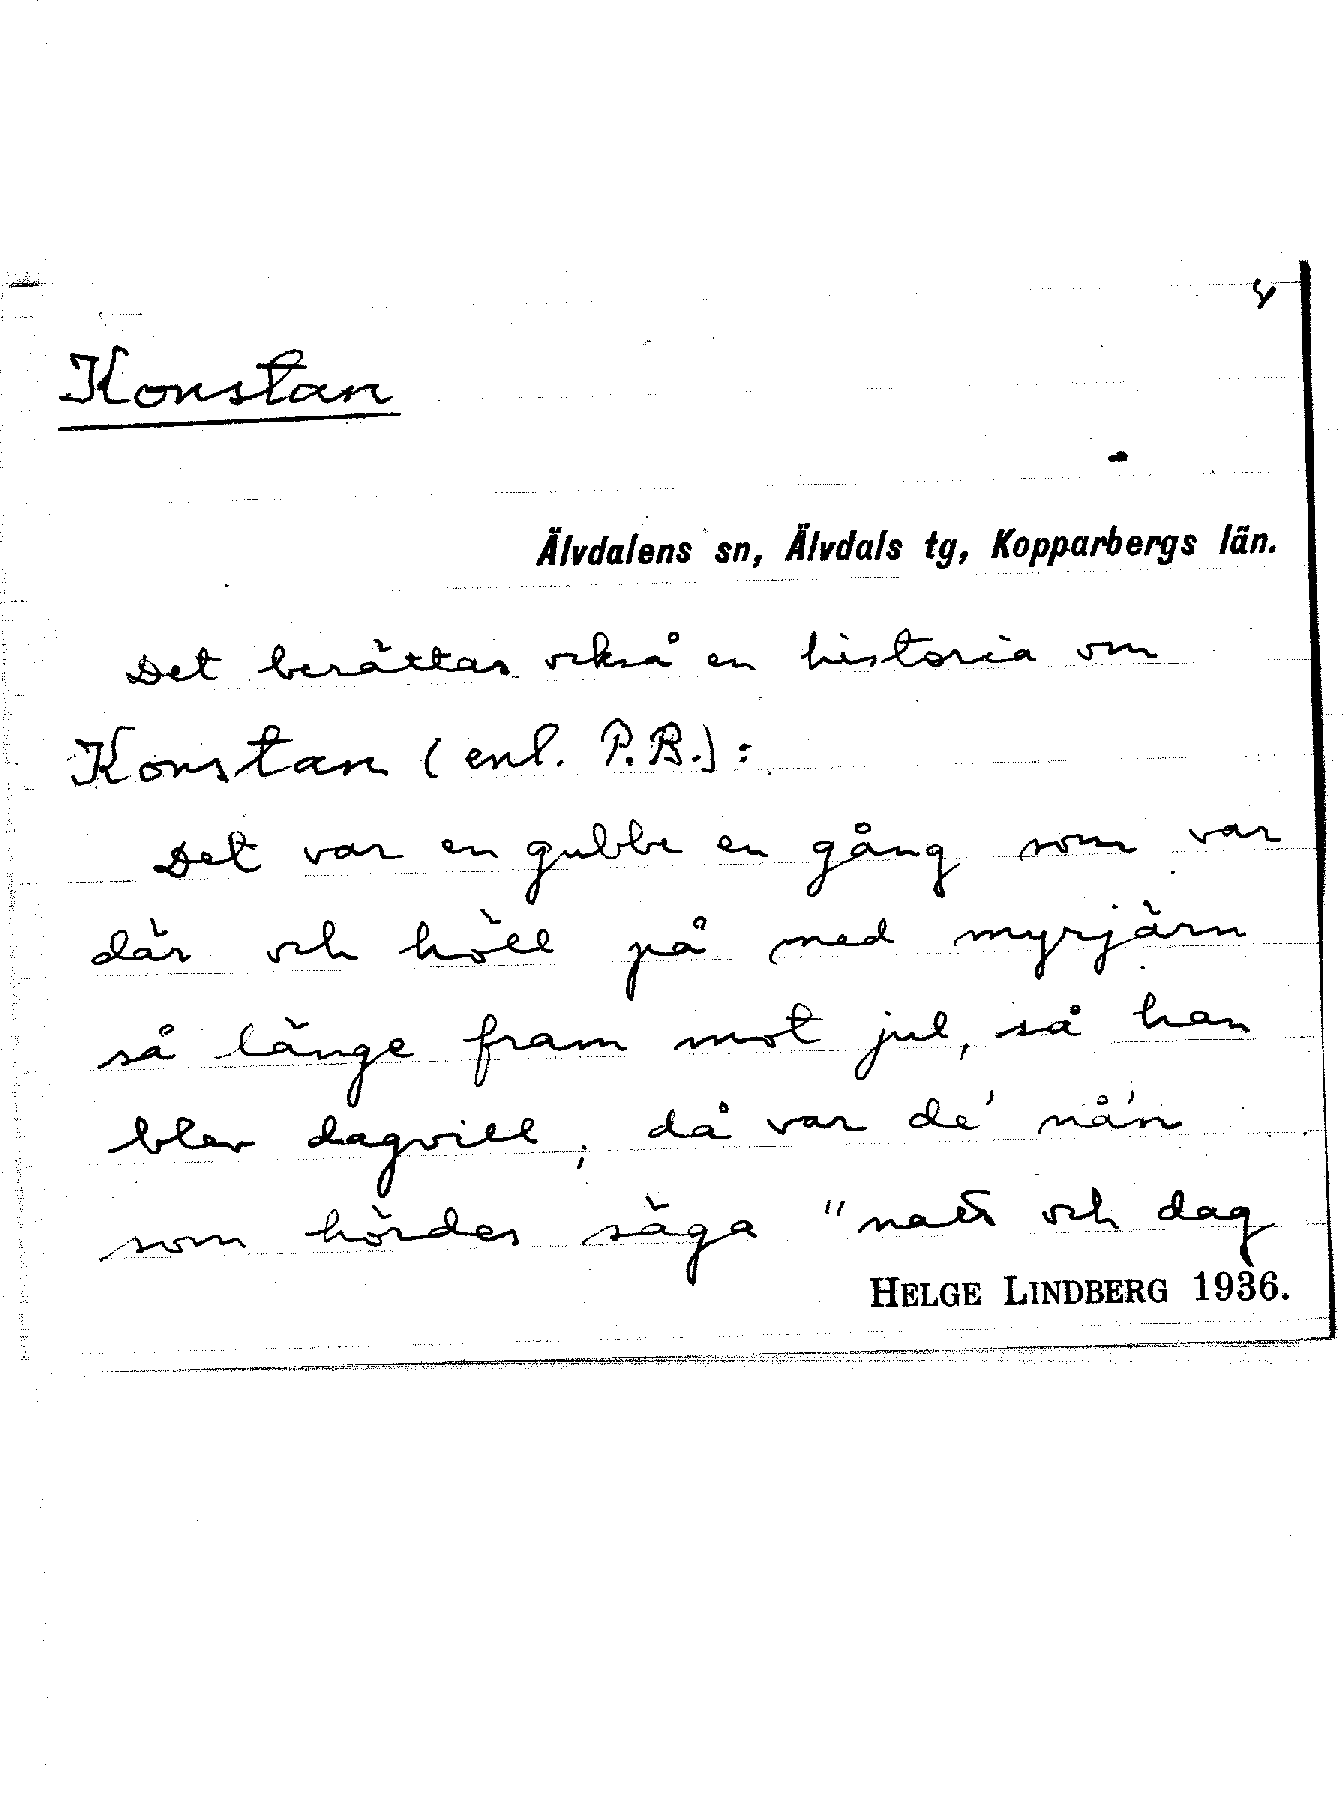 4
Konstan
Älvdalens sn, Älvdals tg, Kopparbergs län.
Det berättas också en historia om
Konstan (enl. P.B.):
Det var en gubbe en gång som var
där och höll på med myrjärn
så länge fram mot jul, så han
blev dagvill; då var de' nå'n
som hördes säga "natt och dag
HELGE LINDBERG 1936.